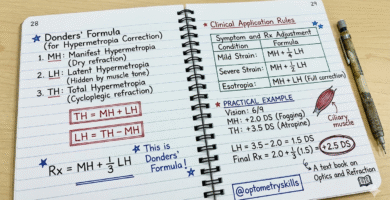 29
Donders' Formula
(for Hypermetropia Correction)
1. MH: Manifest Hypermetropia
(Dry refraction)
2. LH: Latent Hypermetropia
(Hidden by muscle tone)
3. TH: Total Hypermetropia
(Cycloplegic refraction)
TH = MH + LH
LH = TH - MH
Rx = MH + 1/3 LH
This is
Donders'
Formula!
29
Clinical Application Rules
Symptom and Rx Adjustment
Condition Formula
Mild Strain: MH + 1/4 LH
Severe Strain: MH + 1/2 LH
Esotropia: MH + LH (Full correction)
PRACTICAL EXAMPLE
Vision: 6/9
MH: +2.0 DS (Fogging)
TH: +3.5 DS (Atropine)
Ciliary
muscle
LH = 3.5 - 2.0 = 1.5 DS
Final Rx = 2.0 + 1/3 (1.5) = +2.5 DS
@optometryskills
A text book on
Optics and Refraction